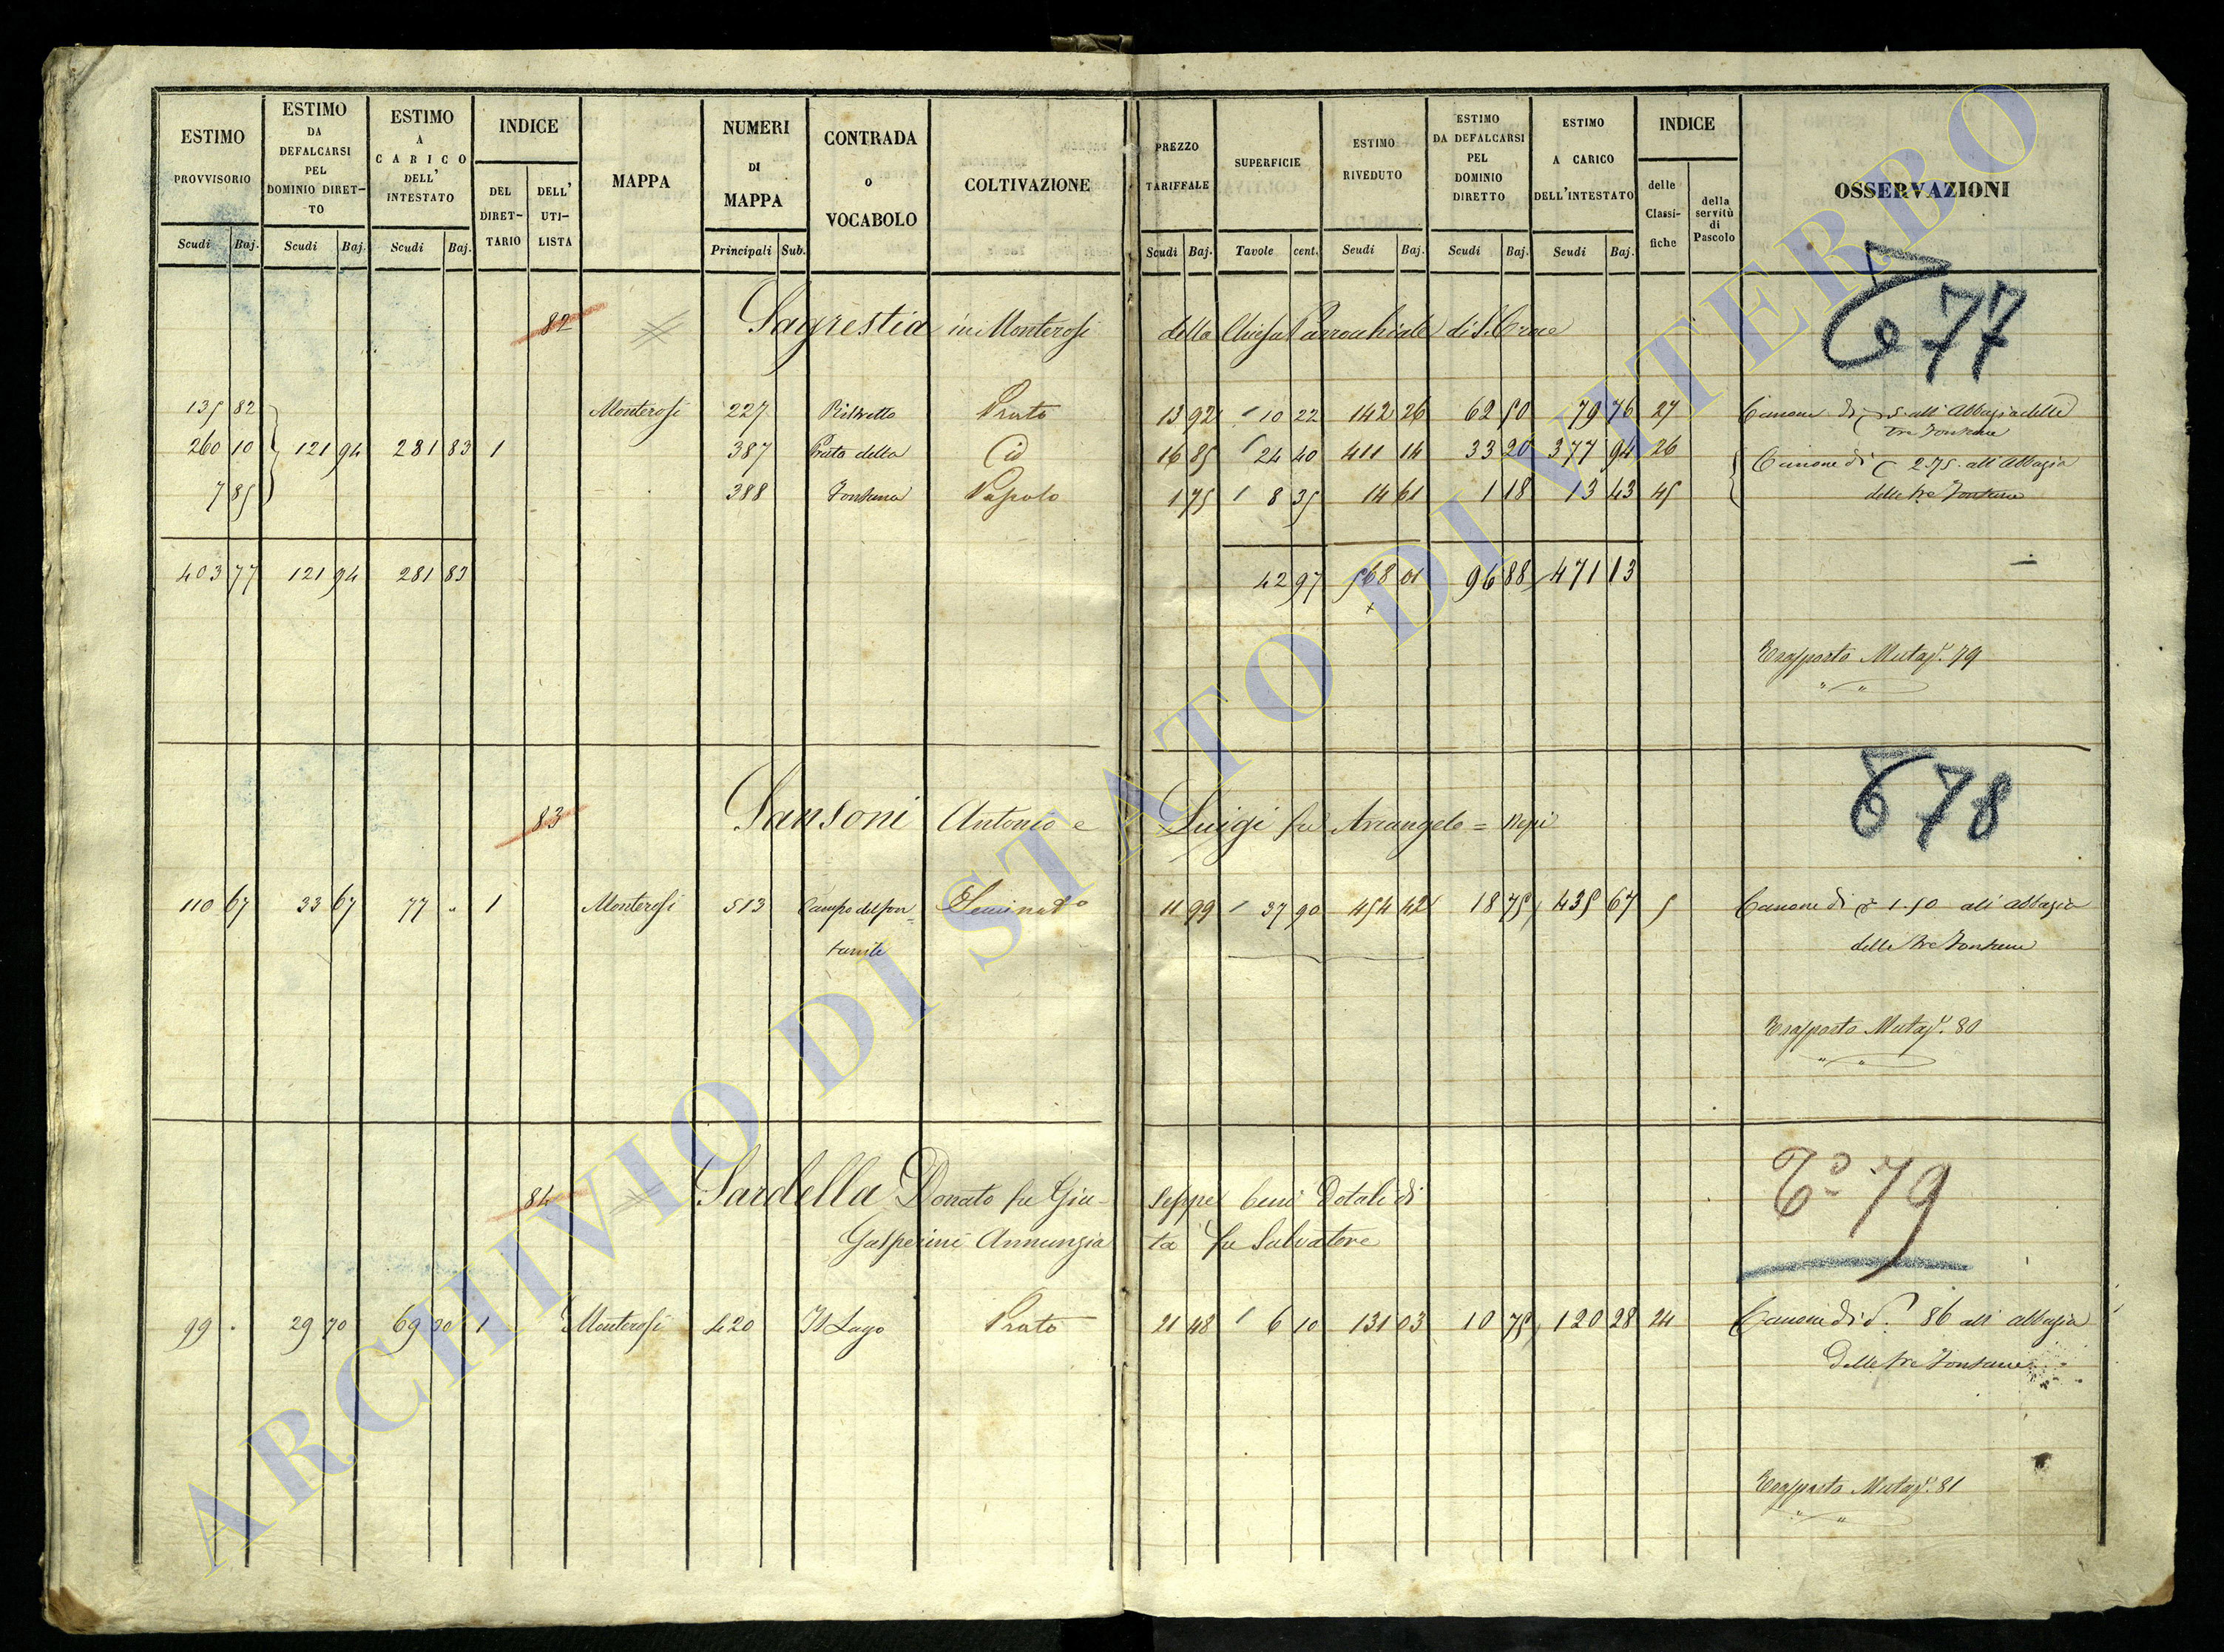 ESTIMO PROVVISORIO Scudi Baj.
ESTIMO DA DEFALCARSI PEL DOMINIO DIRET-TO Scudi Baj.
ESTIMO A CARICO DELL' INTESTATO Scudi Baj.
INDICE DEL DIRET-TARIO DELL' UTI-LISTA
MAPPA
NUMERI DI MAPPA Principali Sub.
CONTRADA o VOCABOLO
COLTIVAZIONE
PREZZO TARIFFALE Scudi Baj.
SUPERFICIE Tavole cent.
ESTIMO RIVEDUTO Scudi Baj.
ESTIMO DA DEFALCARSI PEL DOMINIO DIRETTO Scudi Baj.
ESTIMO A CARICO DELL'INTESTATO Scudi Baj.
INDICE delle Classi-fiche della servitù di Pascolo
OSSERVAZIONI
77
82 Sagrestia in Monterosi della Chiesa Parrochiale di S. Croce
135 82 Monterosi 227 Prato 13 92 10 22 142 26 62 50 79 76 27 Canone di 5 all' Abbazia delle
tre Fontane
260 10 121 94 281 83 1 387 Prato della Id 16 85 24 40 411 14 33 20 377 94 26 Canone di 2.75 all' Abbazia
7 85 388 Fontana Pascolo 1 75 8 35 14 61 1 18 13 43 45 delle tre Fontane
403 77 121 94 281 83 42 97 568 01 96 88 471 13
Trasporto Mutaz. 79
78
83 Sansoni Antonio e Luigi fu Arcangelo = Nepi
110 67 33 67 77 " 1 Monterosi 513 Campo del fon= Seminato 11 99 37 90 454 42 18 75 435 67 5 Canone di 1.50 all' abbazia
tanile delle tre Fontane
Trasporto Mutaz. 80
79
84 Sardella Donato fu Giu-seppe beni Dotali di
Gasperini Annunzia ta fu Salvatore
99 . 29 70 69 30 1 Monterosi 420 Il Lago Prato 21 48 6 10 131 03 10 75 120 28 24 Canone di 86 all' abbazia
Delle tre Fontane
Trasporto Mutaz. 81
ARCHIVIO DI STATO DI VITERBO